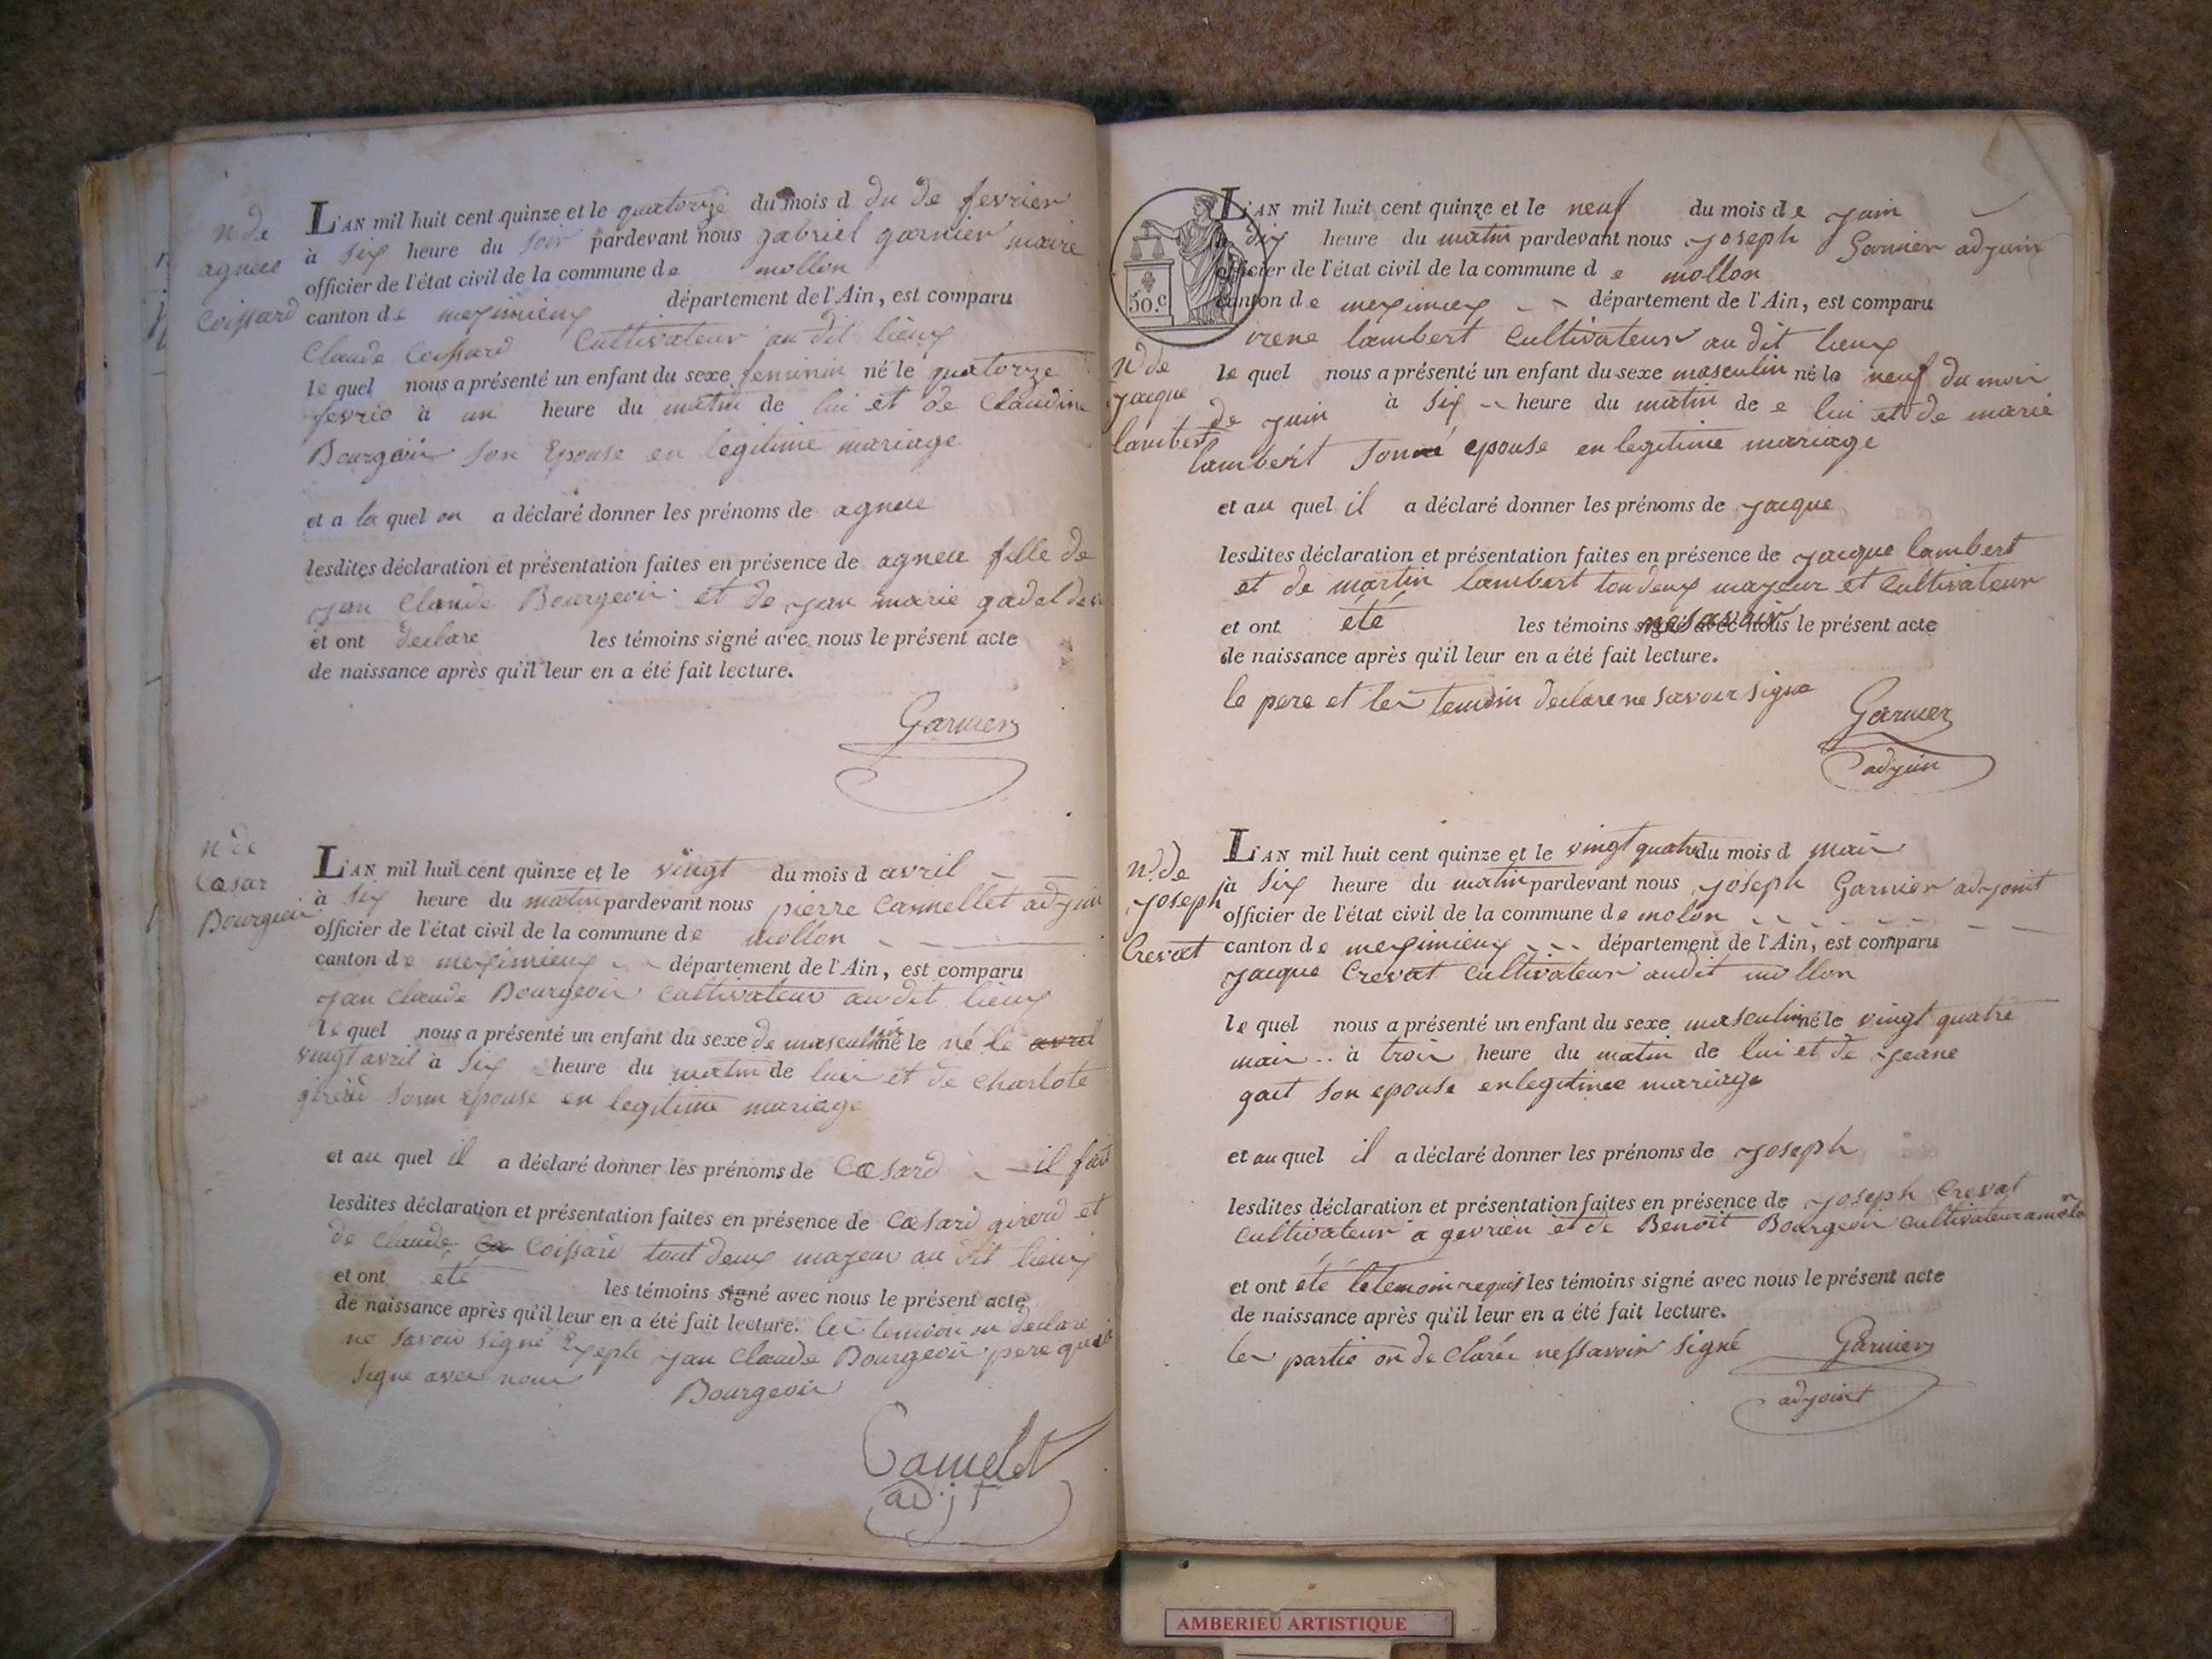 n de
agnese
Coissard
L'AN mil huit cent quinze et le quatorze du mois d du de fevrier
à six heure du soir pardevant nous gabriel garnier maire
officier de l'état civil de la commune de mollon
canton de meximieux département de l'Ain, est comparu
Claude Coissard Cultivateur au dit lieux
le quel nous a présenté un enfant du sexe feminin né le quatorze
fevrie à un heure du matin de lui et de Claudine
Bourgeois son Epouse en legitime mariage
et a la quel on a déclaré donner les prénoms de agnese
lesdites déclaration et présentation faites en présence de agnese fille de
jan Claude Bourgeois et de jan marie gadel
et ont declare les témoins signé avec nous le présent acte
de naissance après qu'il leur en a été fait lecture.
Garnier
n de
Cæsar
Bourgeois
L'AN mil huit cent quinze et le vingt du mois d avril
à six heure du matin pardevant nous pierre Camellet adjoin
officier de l'état civil de la commune de mollon
canton de meximieux département de l'Ain, est comparu
jan Claude Bourgeois cultivateur audit lieux
le quel nous a présenté un enfant du sexe de masculin né le né le avril
vingt avril à six heure du matin de lui et de Charlote
girerd sonn Epouse en legitime mariage
et au quel il a déclaré donner les prénoms de Cæsard il fait
lesdites déclaration et présentation faites en présence de Cæsard girerd et
de Claude Coissard tout deux majeur au dit lieux
et ont été les témoins signé avec nous le présent acte
de naissance après qu'il leur en a été fait lecture. les temoin on declare
ne savoir signé Exeple jan Claude Bourgeois pere qui a
signe avec nous Bourgeois
Camelet
adjt
50.c
L'AN mil huit cent quinze et le neuf du mois de juin
à dix heure du matin pardevant nous joseph Garnier adjoin
officier de l'état civil de la commune de mollon
canton de meximieux département de l'Ain, est comparu
irene lambert cultivateur au dit lieux
n de
jacque
lambert
le quel nous a présenté un enfant du sexe masculin né le neuf du mois
de juin à six heure du matin de e lui et de marie
lambert sonné epouse en legitime mariage
et au quel il a déclaré donner les prénoms de jacque
lesdites déclaration et présentation faites en présence de jacque lambert
et de martin lambert tou deux majeur et cultivateur
et ont été les témoins signé avec nous le présent acte
de naissance après qu'il leur en a été fait lecture.
le pere et les temoin declare ne savoir signe
Garnier
adjoin
n.de
joseph
Crevat
L'AN mil huit cent quinze et le vingt quatre du mois d mai
à six heure du matin pardevant nous joseph Garnier adjoint
officier de l'état civil de la commune de molon
canton de meximieux département de l'Ain, est comparu
jacque Crevat cultivateur audit mollon
le quel nous a présenté un enfant du sexe masculin né le vingt quatre
mai à trois heure du matin de lui et de jeane
gait son epouse en legitimee mariage
et au quel il a déclaré donner les prénoms de joseph
lesdites déclaration et présentation faites en présence de joseph Crevat
cultivateur a gevrieu et de Benoit Bourgeois cultivateur a molon
et ont été le temoin requis les témoins signé avec nous le présent acte
de naissance après qu'il leur en a été fait lecture.
les partie on de clarée nessavoir signé
Garnier
adjoint
AMBERIEU ARTISTIQUE